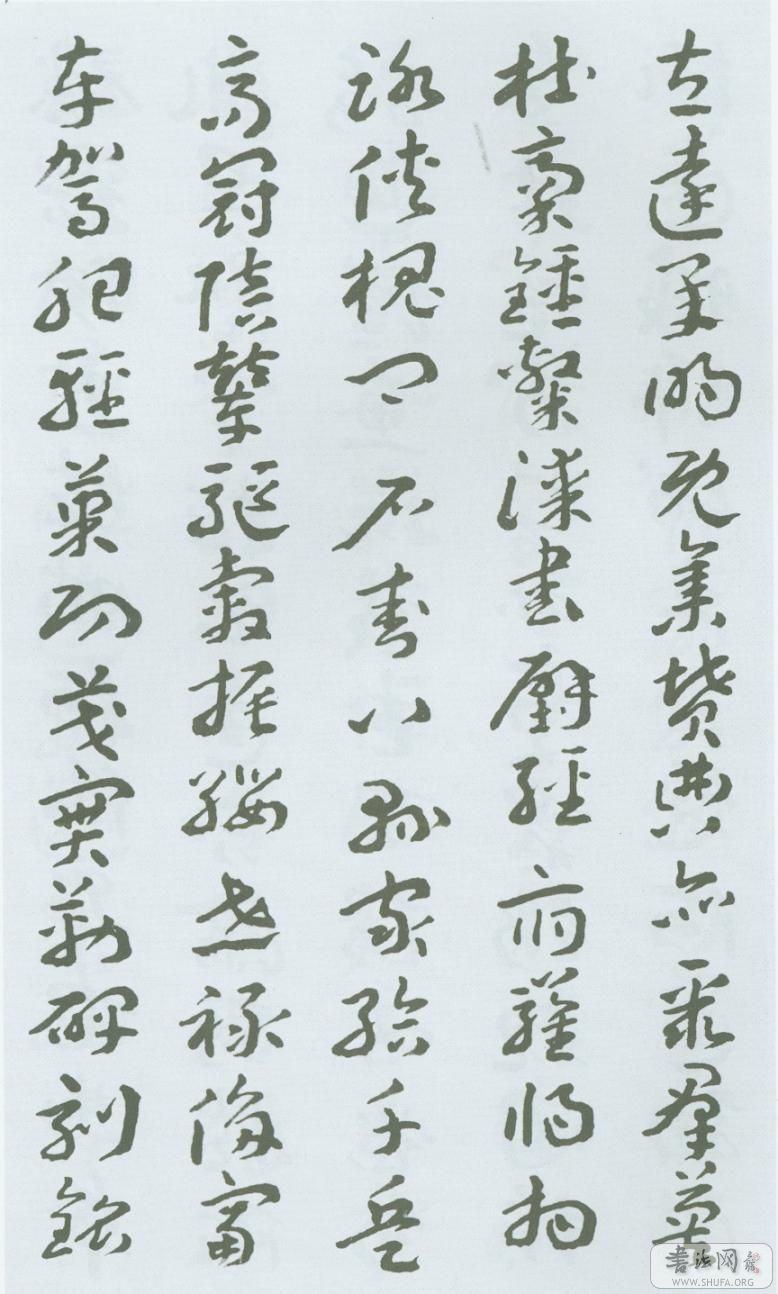 左達承明既集墳典亦聚群英
杜稾鍾隸漆書壁經府羅將相
路俠槐卿戶封八縣家給千兵
高冠陪輦驅轂振纓世祿侈富
車駕肥輕策功茂實勒碑刻銘
書法网
WWW.SHUFA.ORG